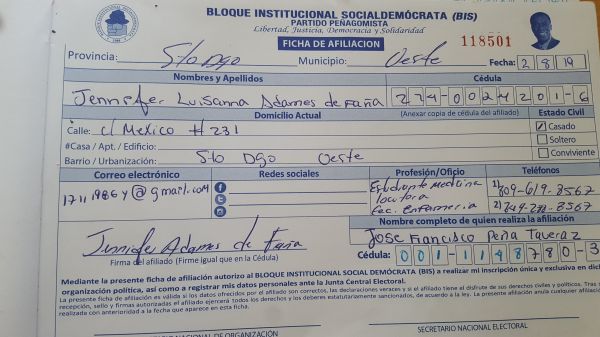 BLOQUE INSTITUCIONAL SOCIALDEMÓCRATA (BIS)
PARTIDO PEÑAGOMISTA
Libertad, Justicia, Democracia y Solidaridad
FICHA DE AFILIACION
118501
Provincia: Sto Dgo Municipio: Oeste Fecha: 2 8 19
Nombres y Apellidos Cédula
Jennifer Luisanna Adames de Faña 224-0024201-6
Domicilio Actual (Anexar copia de cédula del afiliado) Estado Civil
Calle: c/ Mexico # 231 Casado
#Casa / Apt. / Edificio: Soltero
Barrio / Urbanización: Sto Dgo Oeste Conviviente
Correo electrónico Redes sociales Profesión/Oficio Teléfonos
17111986y@gmail.com Estudiante Medicina 1) 809-619-8567
locutora 2)
Enfermeria
Nombre completo de quien realiza la afiliación
Jennifer Adames de Faña Jose Francisco Peña Taveraz
Firma del afiliado (Firme igual que en la Cédula) Cédula: 001-1148780-3
Mediante la presente ficha de afiliación autorizo al BLOQUE INSTITUCIONAL SOCIAL DEMÓCRATA (BIS) a realizar mi inscripción única y exclusiva en dich
organización política, así como a registrar mis datos personales ante la Junta Central Electoral.
La presente ficha de afiliación es válida si los datos ofrecidos por el afiliado son correctos, las declaraciones veraces y si el afiliado tiene el disfrute de sus derechos civiles y políticos. Tras s
recepción, sello y firmas autorizadas el afiliado ejercerá todos los derechos y los deberes estatutariamente sancionados, de acuerdo a la ley. La presente afiliación anula cualquier afiliación
realizada con anterioridad a la fecha que aparece en esta ficha.
NACIONAL DE ORGANIZACIÓN SECRETARIO NACIONAL ELECTORAL